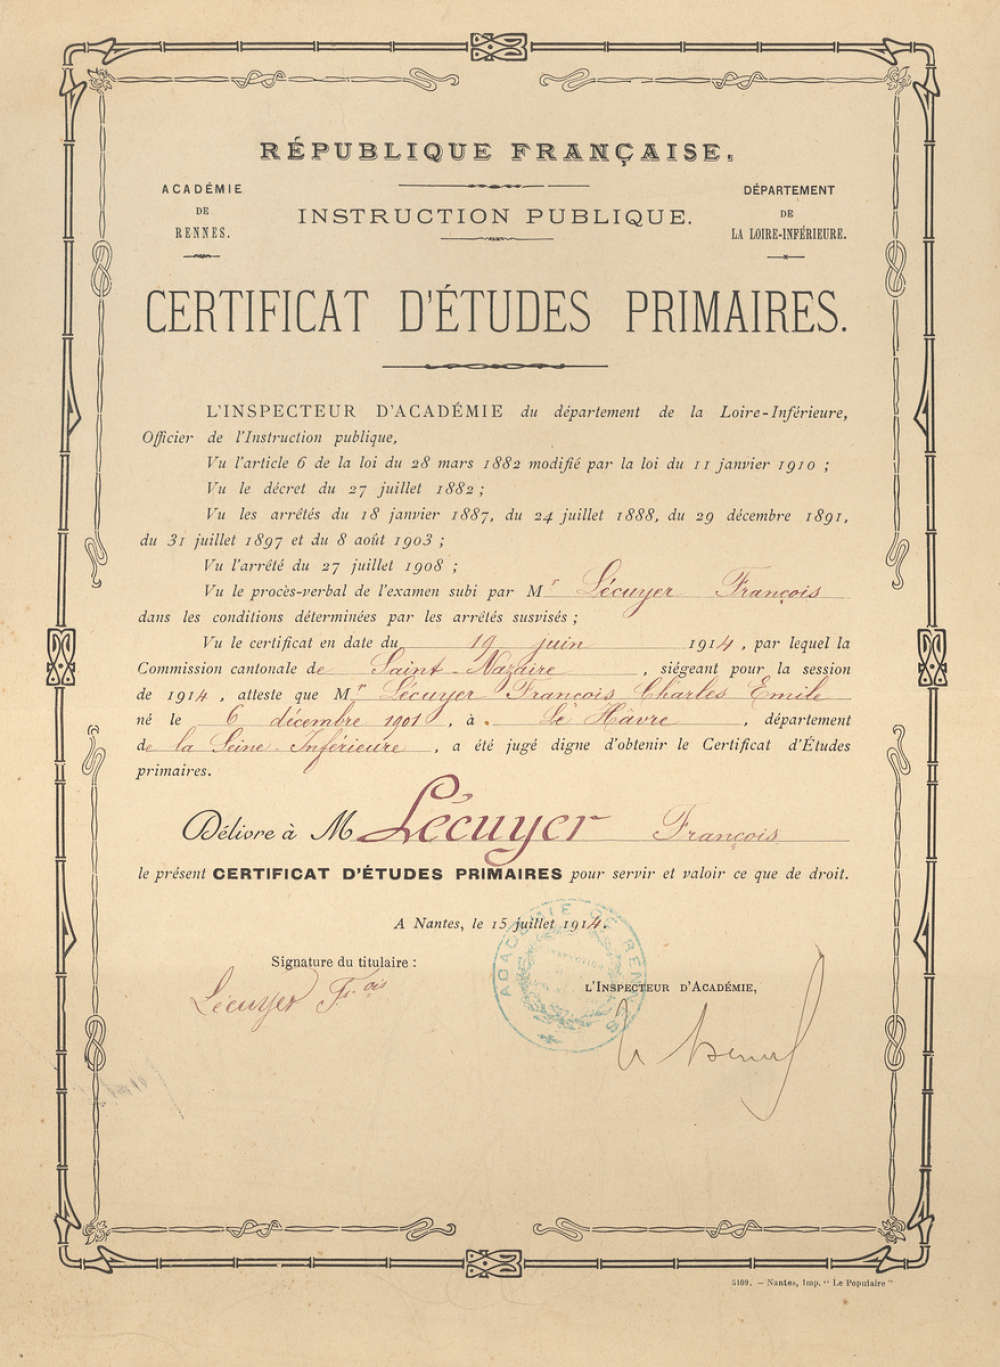 RÉPUBLIQUE FRANÇAISE.
ACADÉMIE
DE
RENNES.
INSTRUCTION PUBLIQUE.
DÉPARTEMENT
DE
LA LOIRE-INFÉRIEURE.
CERTIFICAT D'ÉTUDES PRIMAIRES.
L'INSPECTEUR D'ACADÉMIE du département de la Loire-Inférieure,
Officier de l'Instruction publique,
Vu l'article 6 de la loi du 28 mars 1882 modifié par la loi du 11 janvier 1910 ;
Vu le décret du 27 juillet 1882 ;
Vu les arrêtés du 18 janvier 1887, du 24 juillet 1888, du 29 décembre 1891,
du 31 juillet 1897 et du 8 août 1903 ;
Vu l'arrêté du 27 juillet 1908 ;
Vu le procès-verbal de l'examen subi par Mr Lécuyer François
dans les conditions déterminées par les arrêtés susvisés ;
Vu le certificat en date du 19 juin 1914, par lequel la
Commission cantonale de Saint-Nazaire, siégeant pour la session
de 1914, atteste que Mr Lécuyer François Charles Emile
né le 6 décembre 1901, à Le Hâvre, département
de la Seine-Inférieure, a été jugé digne d'obtenir le Certificat d'Études
primaires.
Délivre à M Lécuyer François
le présent CERTIFICAT D'ÉTUDES PRIMAIRES pour servir et valoir ce que de droit.
A Nantes, le 15 juillet 1914.
Signature du titulaire :
Lécuyer Fr.ois
ACADÉMIE DE RENNES
INSPECTION
L'INSPECTEUR D'ACADÉMIE,
5109. — Nantes, Imp. "Le Populaire"